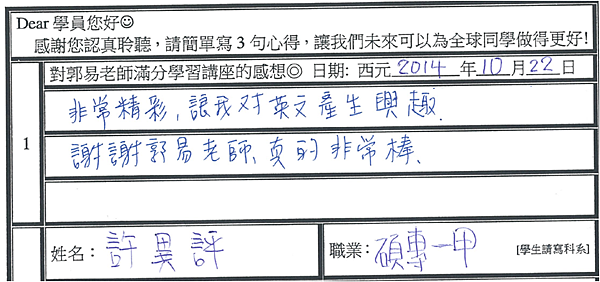 Dear 學員您好☺
感謝您認真聆聽，請簡單寫 3 句心得，讓我們未來可以為全球同學做得更好!
對郭易老師滿分學習講座的感想◎ 日期: 西元 2014 年 10 月 22 日
1
非常精彩, 讓我对英文產生興趣.
謝謝郭易老師, 真的非常棒.
姓名： 許異評
職業： 碩專一甲 [學生請寫科系]